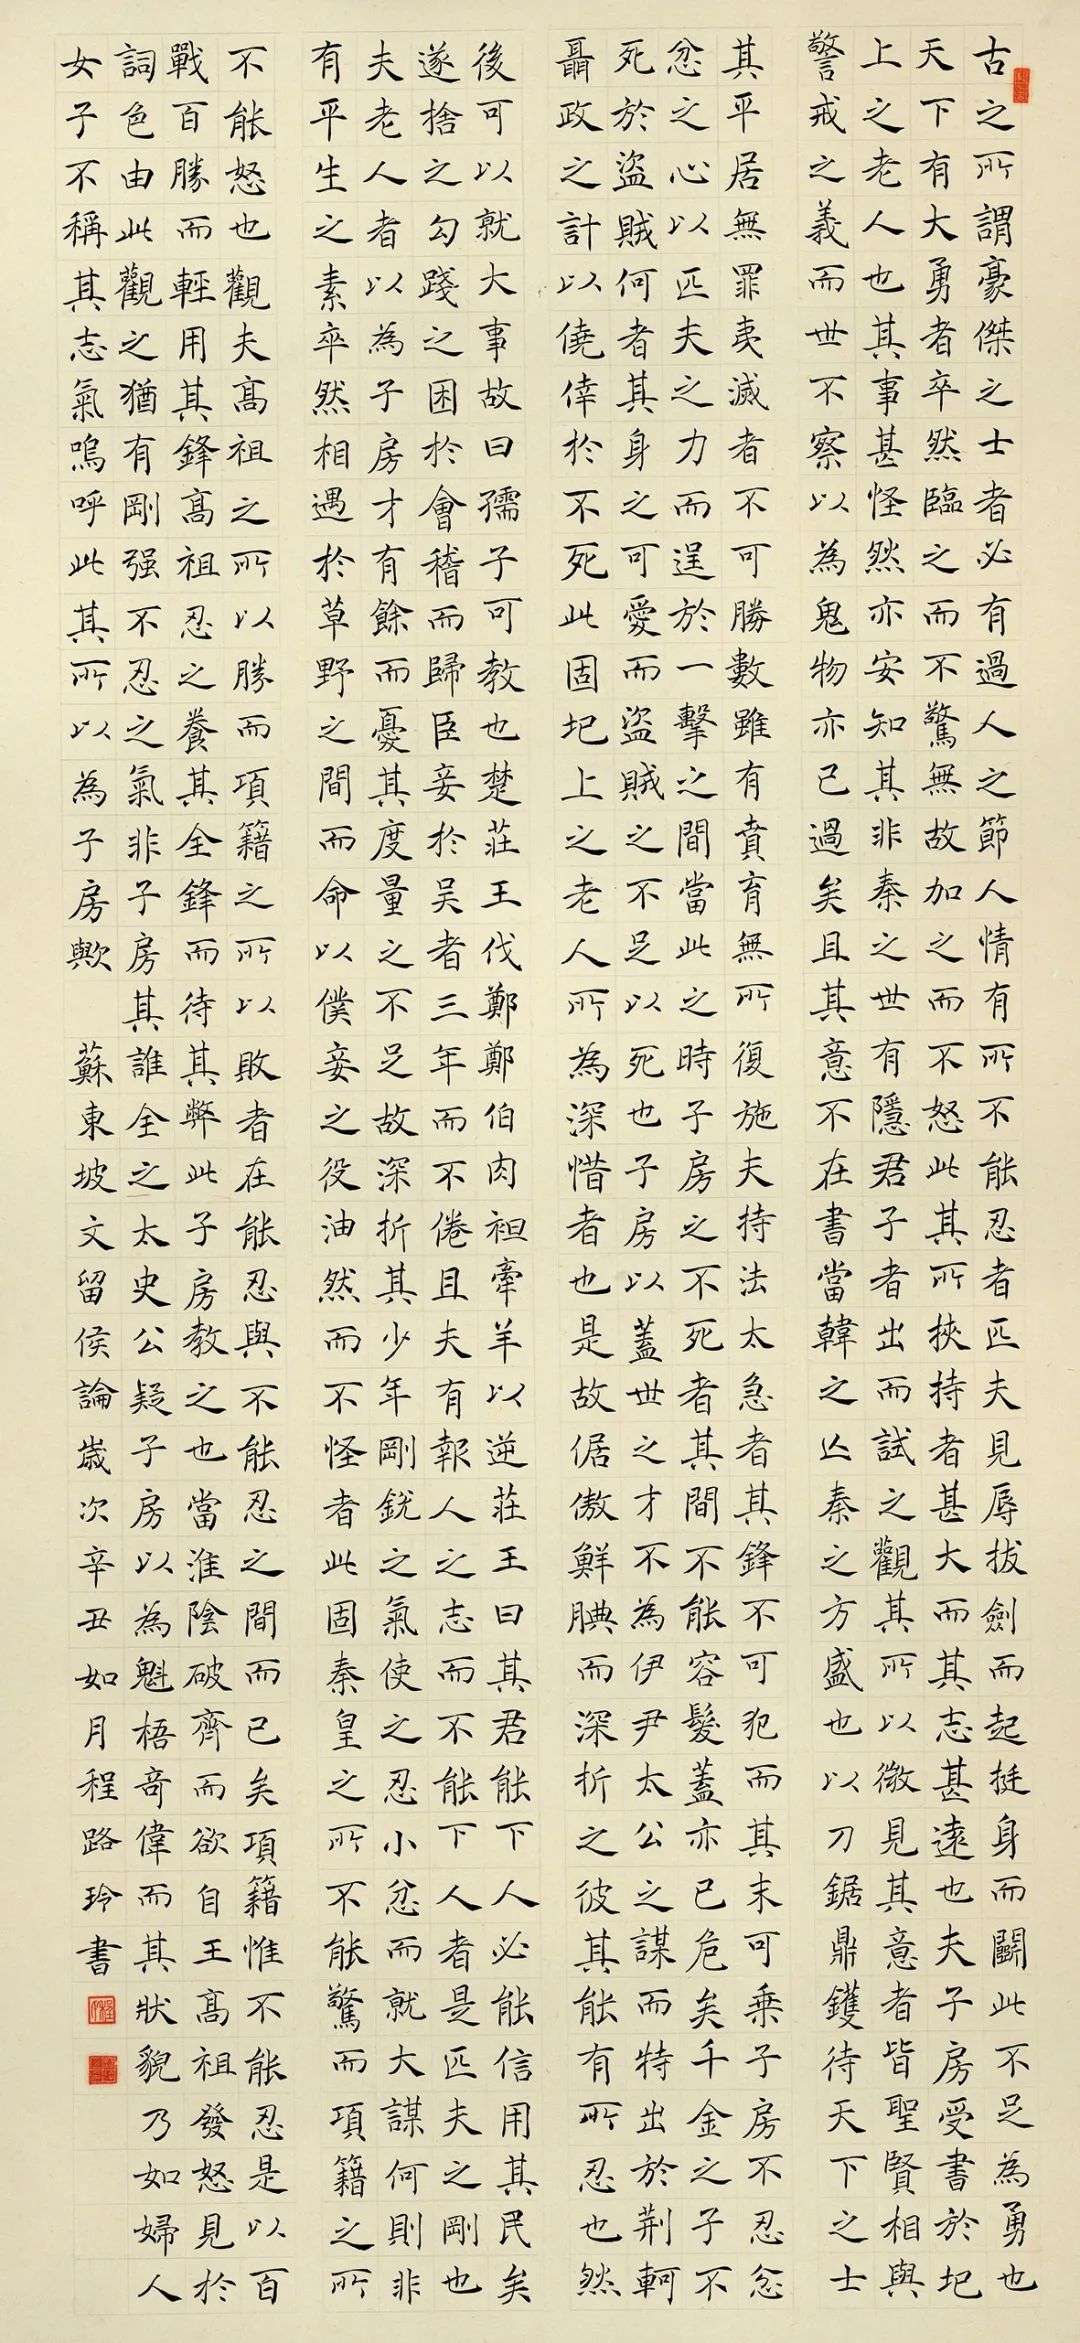 古之所謂豪傑之士者必有過人之節人情有所不能忍者匹夫見辱拔劍而起挺身而鬭此不足為勇也
天下有大勇者卒然臨之而不驚無故加之而不怒此其所挾持者甚大而其志甚遠也夫子房受書於圯
上之老人也其事甚怪然亦安知其非秦之世有隱君子者出而試之觀其所以微見其意者皆聖賢相與
警戒之義而世不察以為鬼物亦已過矣且其意不在書當韓之亡秦之方盛也以刀鋸鼎鑊待天下之士
其平居無罪夷滅者不可勝數雖有賁育無所復施夫持法太急者其鋒不可犯而其末可乘子房不忍忿
忿之心以匹夫之力而逞於一擊之間當此之時子房之不死者其間不能容髮蓋亦已危矣千金之子不
死於盜賊何者其身之可愛而盜賊之不足以死也子房以蓋世之才不為伊尹太公之謀而特出於荆軻
聶政之計以僥倖於不死此固圯上之老人所為深惜者也是故倨傲鮮腆而深折之彼其能有所忍也然
後可以就大事故曰孺子可教也楚莊王伐鄭鄭伯肉袒牽羊以逆莊王曰其君能下人必能信用其民矣
遂捨之勾踐之困於會稽而歸臣妾於吳者三年而不倦且夫有報人之志而不能下人者是匹夫之剛也
夫老人者以為子房才有餘而憂其度量之不足故深折其少年剛銳之氣使之忍小忿而就大謀何則非
有平生之素卒然相遇於草野之間而命以僕妾之役油然而不怪者此固秦皇之所不能驚而項籍之所
不能怒也觀夫高祖之所以勝而項籍之所以敗者在能忍與不能忍之間而已矣項籍惟不能忍是以百
戰百勝而輕用其鋒高祖忍之養其全鋒而待其弊此子房教之也當淮陰破齊而欲自王高祖發怒見於
詞色由此觀之猶有剛强不忍之氣非子房其誰全之太史公疑子房以為魁梧奇偉而其狀貌乃如婦人
女子不稱其志氣嗚呼此其所以為子房歟 蘇東坡文留侯論歲次辛丑如月程路玲書